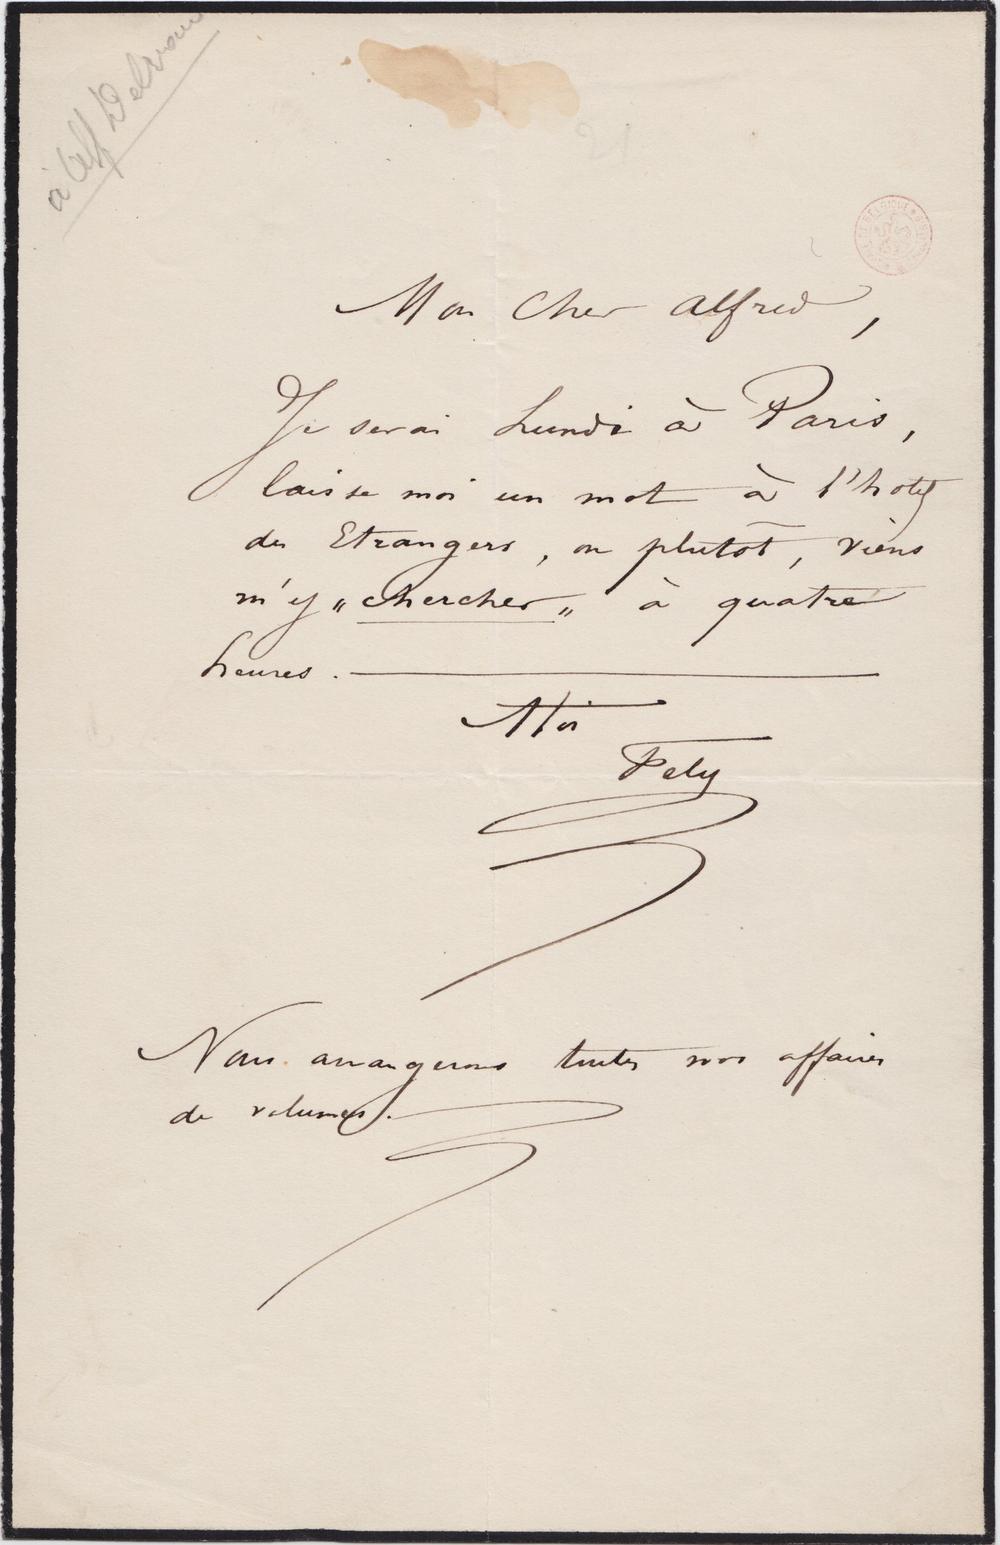 à Alf Delvau
21
Mon Cher Alfred,
Je serai Lundi à Paris,
laisse moi un mot à l'hotel
des Etrangers, ou plutôt, viens
m'y „chercher„ à quatre
heures.
A toi
Fely
Nous arrangerons toutes nos affaires
de volumes.